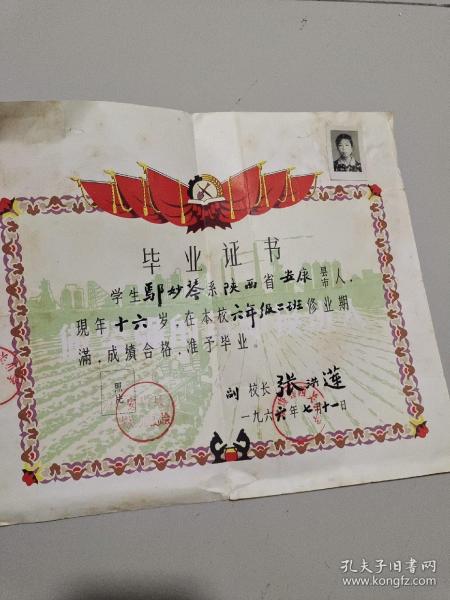 毕业证书
学生鄢妙苓系陕西省安康县市人,
现年十六岁在本校六年级二班修业期
满,成绩合格,准予毕业。
副 校长 张洪莲
一九六六年七月十一日
孔夫子旧书网
www.kongfz.com